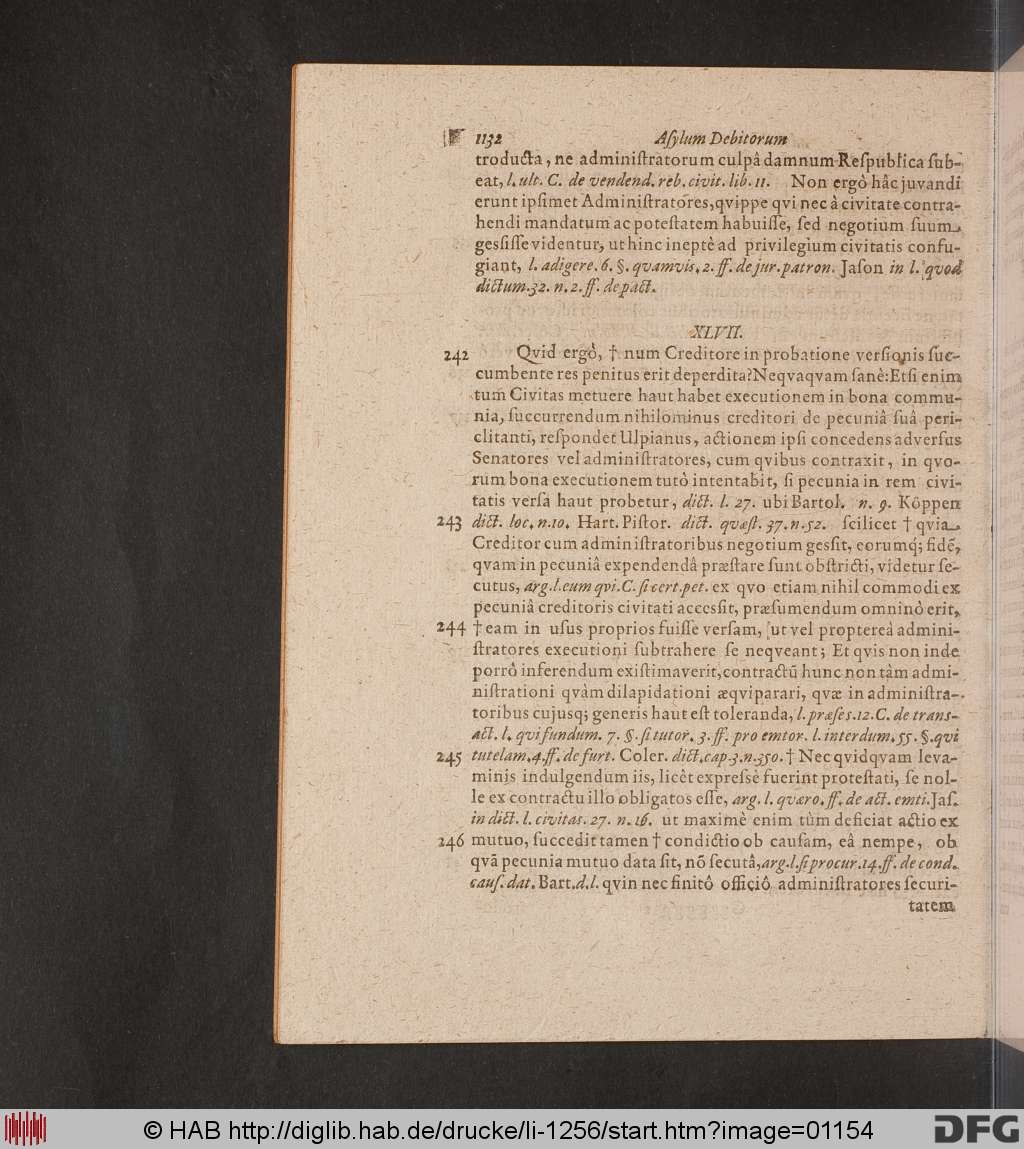 1132 Aſylum Debitorum
troducta, ne adminiſtratorum culpâ damnum Reſpublica ſub-
eat, l. ult. C. de vendend. reb. civit. lib. 11. Non ergò hâc juvandi
erunt ipſimet Adminiſtratores, qvippe qvi nec à civitate contra-
hendi mandatum ac poteſtatem habuiſſe, ſed negotium ſuum
gesſiſſe videntur, ut hinc ineptè ad privilegium civitatis confu-
giant, l. adigere. 6. §. qvamvis. 2. ff. de jur. patron. Jaſon in l. quod
dictum. 32. n. 2. ff. de pact.
XLVII.
242 Qvid ergò, † num Creditore in probatione verſionis ſuc-
cumbente res penitus erit deperdita? Neqvaqvam ſanè: Etſi enim
tum Civitas metuere haut habet executionem in bona commu-
nia, ſuccurrendum nihilominus creditori de pecuniâ ſuâ peri-
clitanti, reſpondet Ulpianus, actionem ipſi concedens adverſus
Senatores vel adminiſtratores, cum qvibus contraxit, in qvo-
rum bona executionem tutò intentabit, ſi pecunia in rem civi-
tatis verſa haut probetur, dict. l. 27. ubi Bartol. n. 9. Köppen
243 dict. loc. n. 10. Hart. Piſtor. dict. quæſt. 37. n. 52. ſcilicet † qvia
Creditor cum adminiſtratoribus negotium gesſit, eorumq́; fidẽ,
qvam in pecuniâ expendendâ præſtare ſunt obſtricti, videtur ſe-
cutus, arg. l. eum qvi. C. ſi cert. pet. ex qvo etiam nihil commodi ex
pecuniâ creditoris civitati accesſit, præſumendum omninò erit,
244 † eam in uſus proprios fuiſſe verſam, ut vel propterea admini-
ſtratores executioni ſubtrahere ſe neqveant; Et qvis non inde
porrò inferendum exiſtimaverit, contractũ hunc non tàm admi-
niſtrationi qvàm dilapidationi æqviparari, qvæ in adminiſtra-
toribus cujusq; generis haut eſt toleranda, l. præſes. 12. C. de trans-
act. l. qvi fundum. 7. §. ſi tutor. 3. ff. pro emtor. l. interdum. 55. §. qvi
245 tutelam. 4. ff. de furt. Coler. dict. cap. 3. n. 350. † Nec qvidqvam leva-
minis indulgendum iis, licèt expreſsè fuerint proteſtati, ſe nol-
le ex contractu illo obligatos eſſe, arg. l. quæro. ff. de act. emti. Jaſ.
in dict. l. civitas. 27. n. 16. ut maximè enim tùm deficiat actio ex
246 mutuo, ſuccedit tamen † condictio ob cauſam, eâ nempe, ob
qvã pecunia mutuo data ſit, nõ ſecutâ, arg. l. ſi procur. 14. ff. de cond.
cauſ. dat. Bart. d. l. qvin nec finitô officiô adminiſtratores ſecuri-
tatem
© HAB http://diglib.hab.de/drucke/li-1256/start.htm?image=01154
DFG